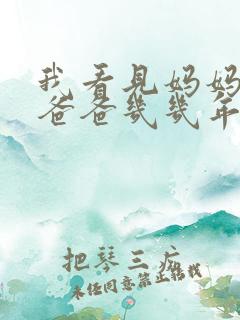 我看见妈妈
爸爸几几年
把琴三疘
未经同意禁止转载